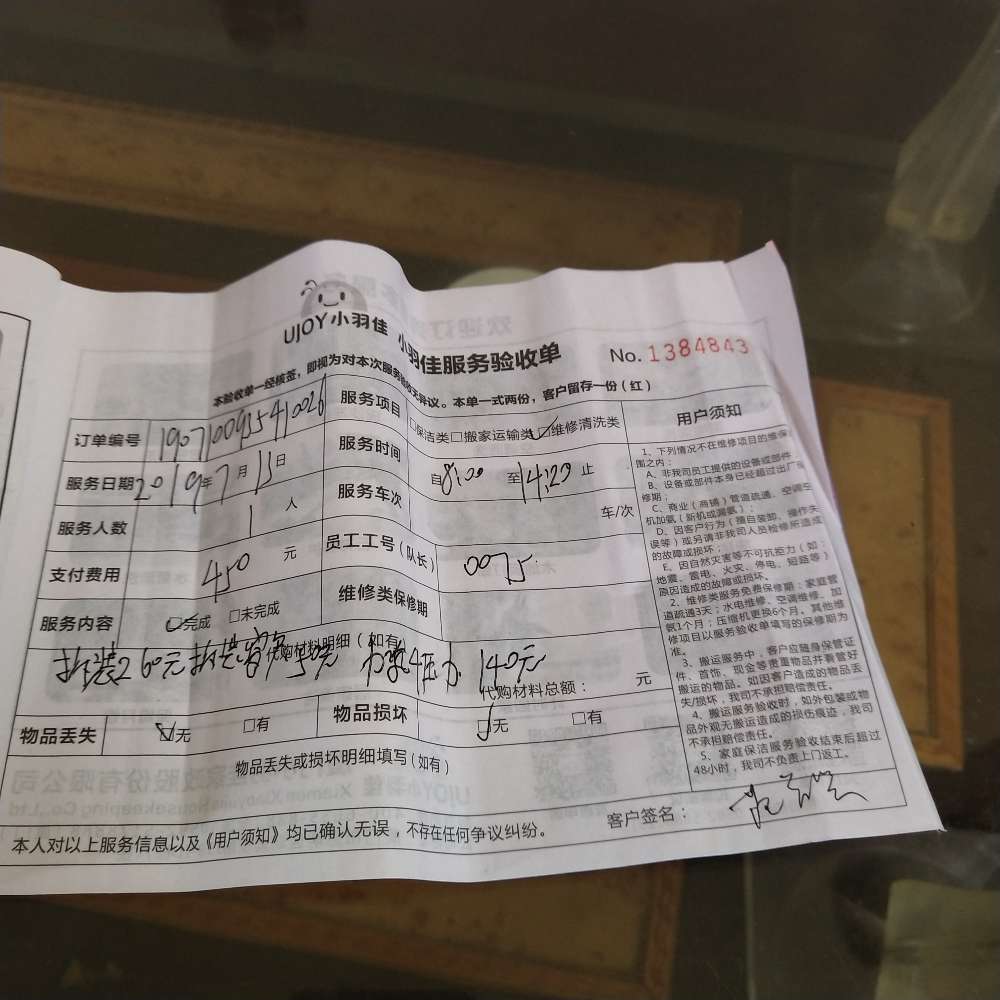 UJOY小羽佳 小羽佳服务验收单
No. 1384843
本验收单一经核签，即视为对本次服务验收无异议。本单一式两份，客户留存一份（红）
订单编号 190710095410026
服务项目 □保洁类□搬家运输类□维修清洗类
服务日期 2019年7月13日
服务时间 自8:00至14:23止
服务人数 1人
服务车次 车/次
支付费用 450元
员工工号（队长） 0075
服务内容 □完成 □未完成
维修类保修期
代购材料明细（如有）
拆装260元 140元
代购材料总额： 元
物品丢失 □无 □有
物品损坏 □无 □有
物品丢失或损坏明细填写（如有）
用户须知
1、下列情况不在维修项目的维保范围之内：
A、非我司员工提供的设备或部件
B、设备或部件本身已经超过出厂保修期；
C、商业（商铺）管道疏通、空调主机加氨（新机或漏氨）；
D、因客户行为（擅自装卸、操作失误等）或另请非我司人员检修所造成的故障或损坏；
E、因自然灾害等不可抗拒力（如：地震、雷电、火灾、停电、短路等）原因造成的故障或损坏。
2、维修类服务免费保修期：家庭管道疏通3天；水电维修、空调维修、加氨1个月；压缩机更换6个月。其他维修项目以服务验收单填写的保修期为准。
3、搬运服务中，客户应随身保管证件、首饰、现金等贵重物品并看管好搬运的物品。如因客户造成的物品丢失/损坏，我司不承担赔偿责任。
4、搬运服务验收时，如外包装或物品外观无搬运造成的损伤痕迹，我司不承担赔偿责任。
5、家庭保洁服务验收结束后超过48小时，我司不负责上门返工。
本人对以上服务信息以及《用户须知》均已确认无误，不存在任何争议纠纷。
客户签名：